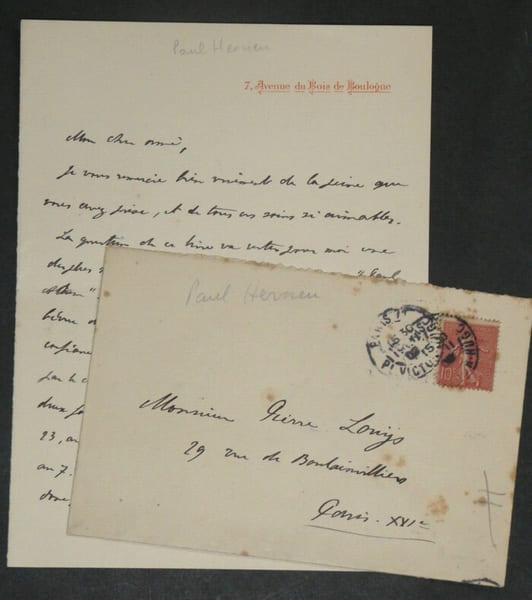 Paul Hervieu
7, Avenue du Bois de Boulogne
Mon cher ami,
Je vous remercie bien vivement de la peine que
vous avez prise, et de tous vos soins si aimables.
La question de ce livre va rester pour moi une
des plus
"Paul
confiance
par le
deux
23, au
au 7.
donc
Paul Hervieu
PARIS
30
15
Pl VICTOR HUGO
10
Monsieur Pierre Louÿs
29 rue de Boulainvilliers
Paris. XVIe